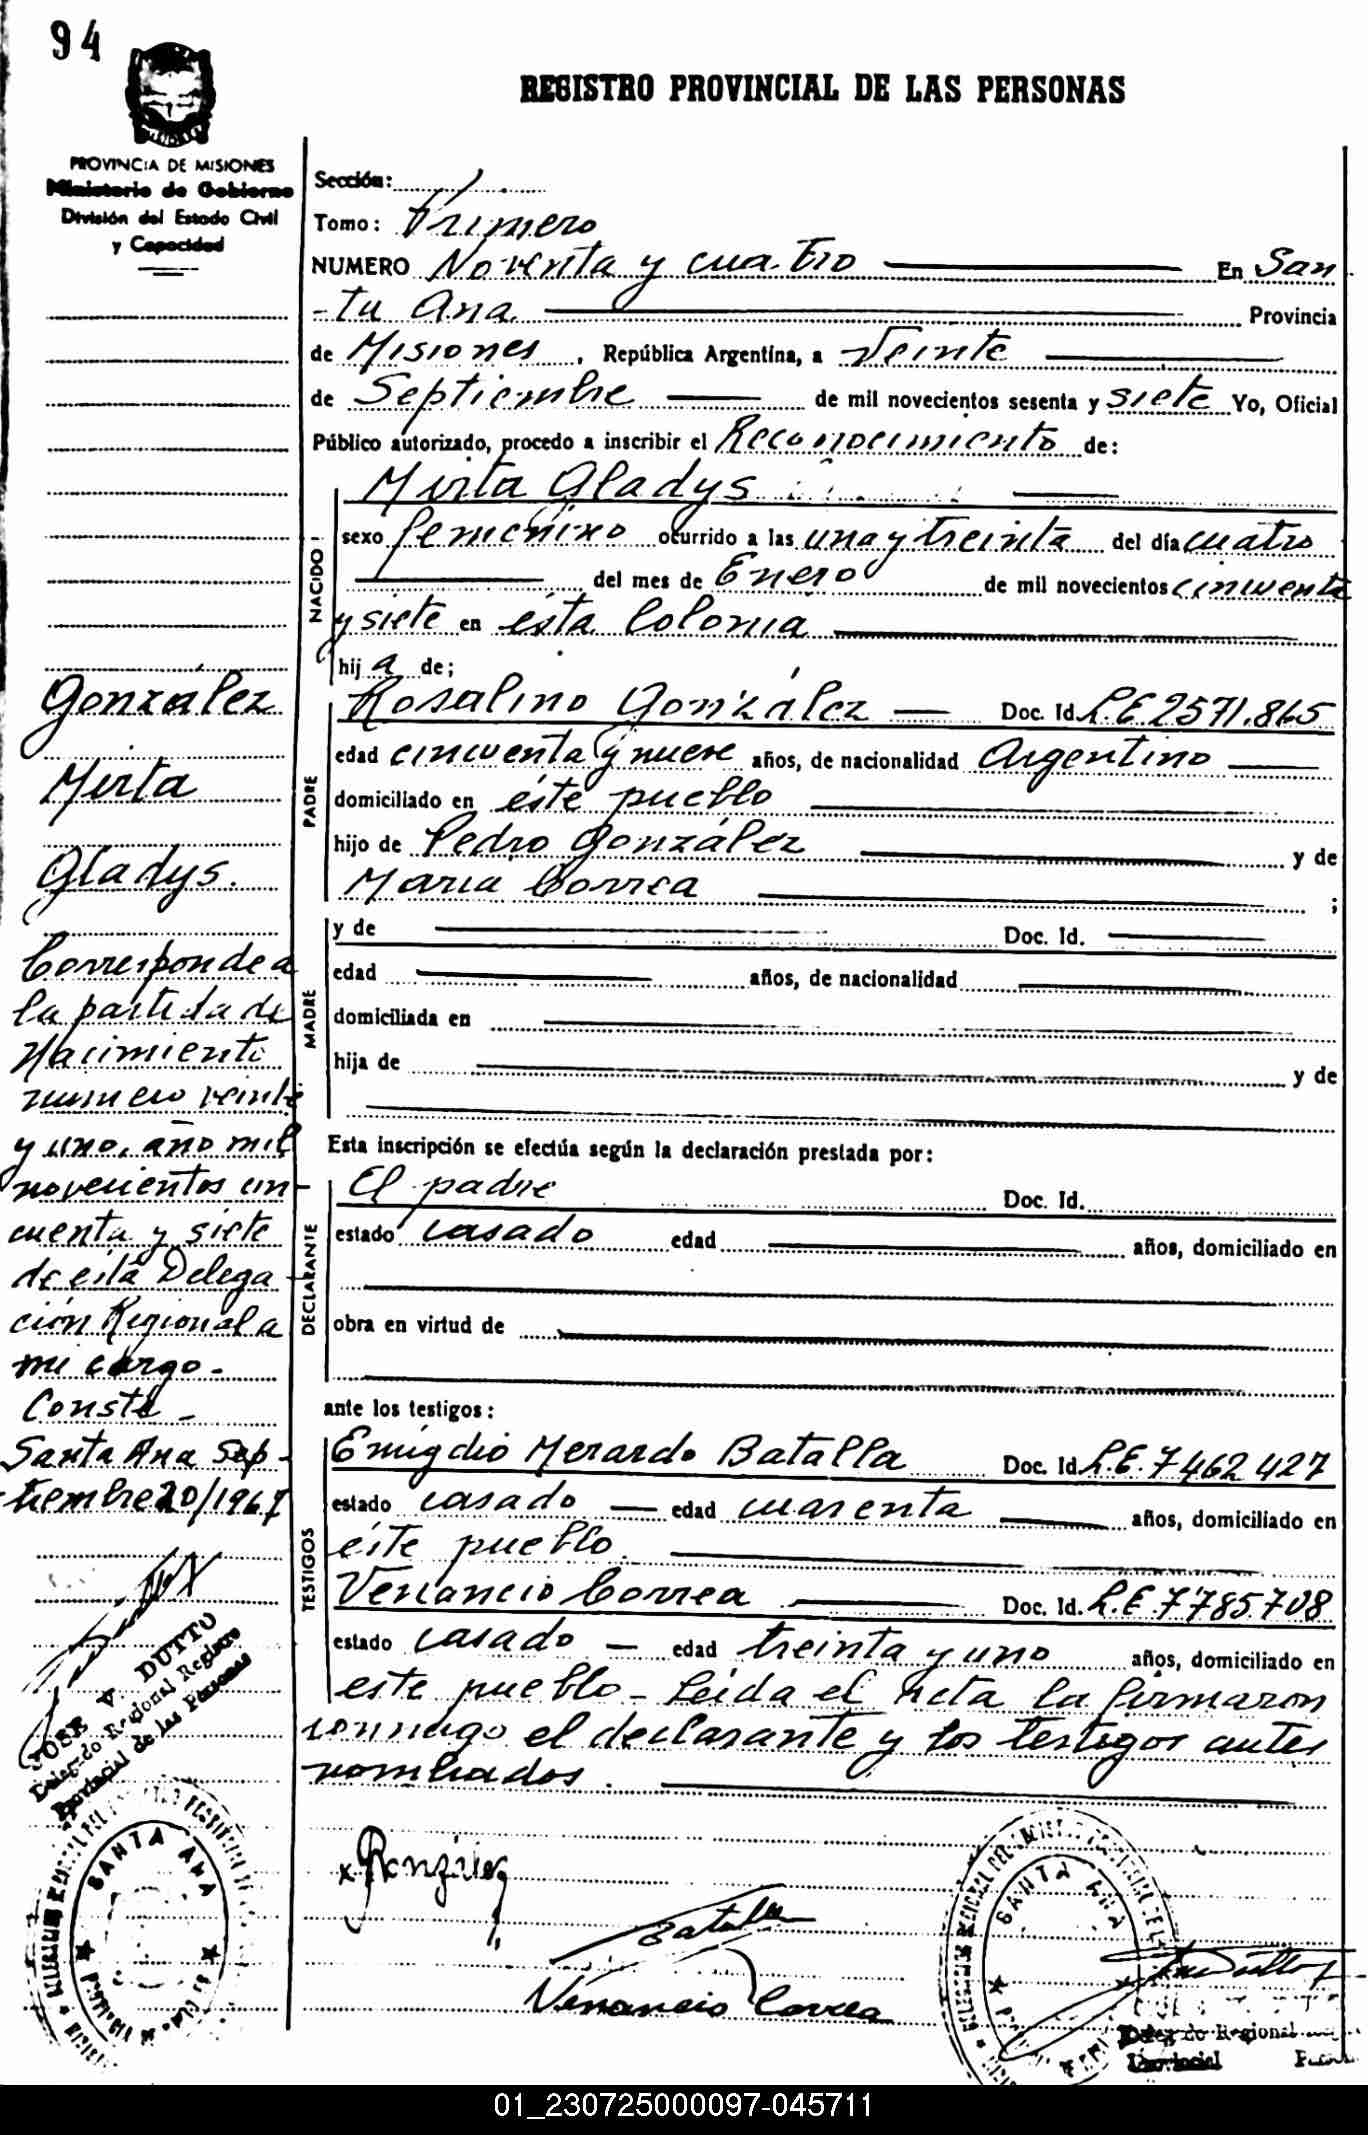 94
REGISTRO PROVINCIAL DE LAS PERSONAS
PROVINCIA DE MISIONES
Ministerio de Gobierno
División del Estado Civil
y Capacidad
Sección:
Tomo: Primero
NUMERO Noventa y cuatro En San
-ta Ana Provincia
de Misiones, República Argentina, a Veinte
de Septiembre de mil novecientos sesenta y siete Yo, Oficial
Público autorizado, procedo a inscribir el Reconocimiento de:
Mirta Gladys
NACIDO:
sexo femenino ocurrido a las una y treinta del día cuatro
del mes de Enero de mil novecientos cincuenta
y siete en ésta Colonia
hij a de;
PADRE
Rosalino González Doc. Id. L.E 2571.865
edad cincuenta y nueve años, de nacionalidad Argentino
domiciliado en éste pueblo
hijo de Pedro González y de
María Correa ;
MADRE
y de Doc. Id.
edad años, de nacionalidad
domiciliada en
hija de y de
Esta inscripción se efectúa según la declaración prestada por:
DECLARANTE
El padre Doc. Id.
estado casado edad años, domiciliado en
obra en virtud de
ante los testigos:
TESTIGOS
Emigdio Merardo Batalla Doc. Id. L.E. 7462427
estado casado edad cuarenta años, domiciliado en
éste pueblo
Venancio Correa Doc. Id. L.E. 7.785.708
estado casado edad treinta y uno años, domiciliado en
este pueblo - Leida el Acta la firmaron
conmigo el declarante y los testigos antes
nombrados.
González
Mirta
Gladys.
Corresponde a
la partida de
Nacimiento
número veinte
y uno, año mil
novecientos cin-
cuenta y siete
de ésta Delega-
ción Regional a
mi cargo-
Conste-
Santa Ana Sep-
tiembre 20/1967
JOSE V. DUTTO
Delegado Regional Registro
Provincial de las Personas
SANTA ANA
x González
Batalla
Venancio Correa
SANTA ANA
Delegado Regional
Provincial
01_230725000097-045711